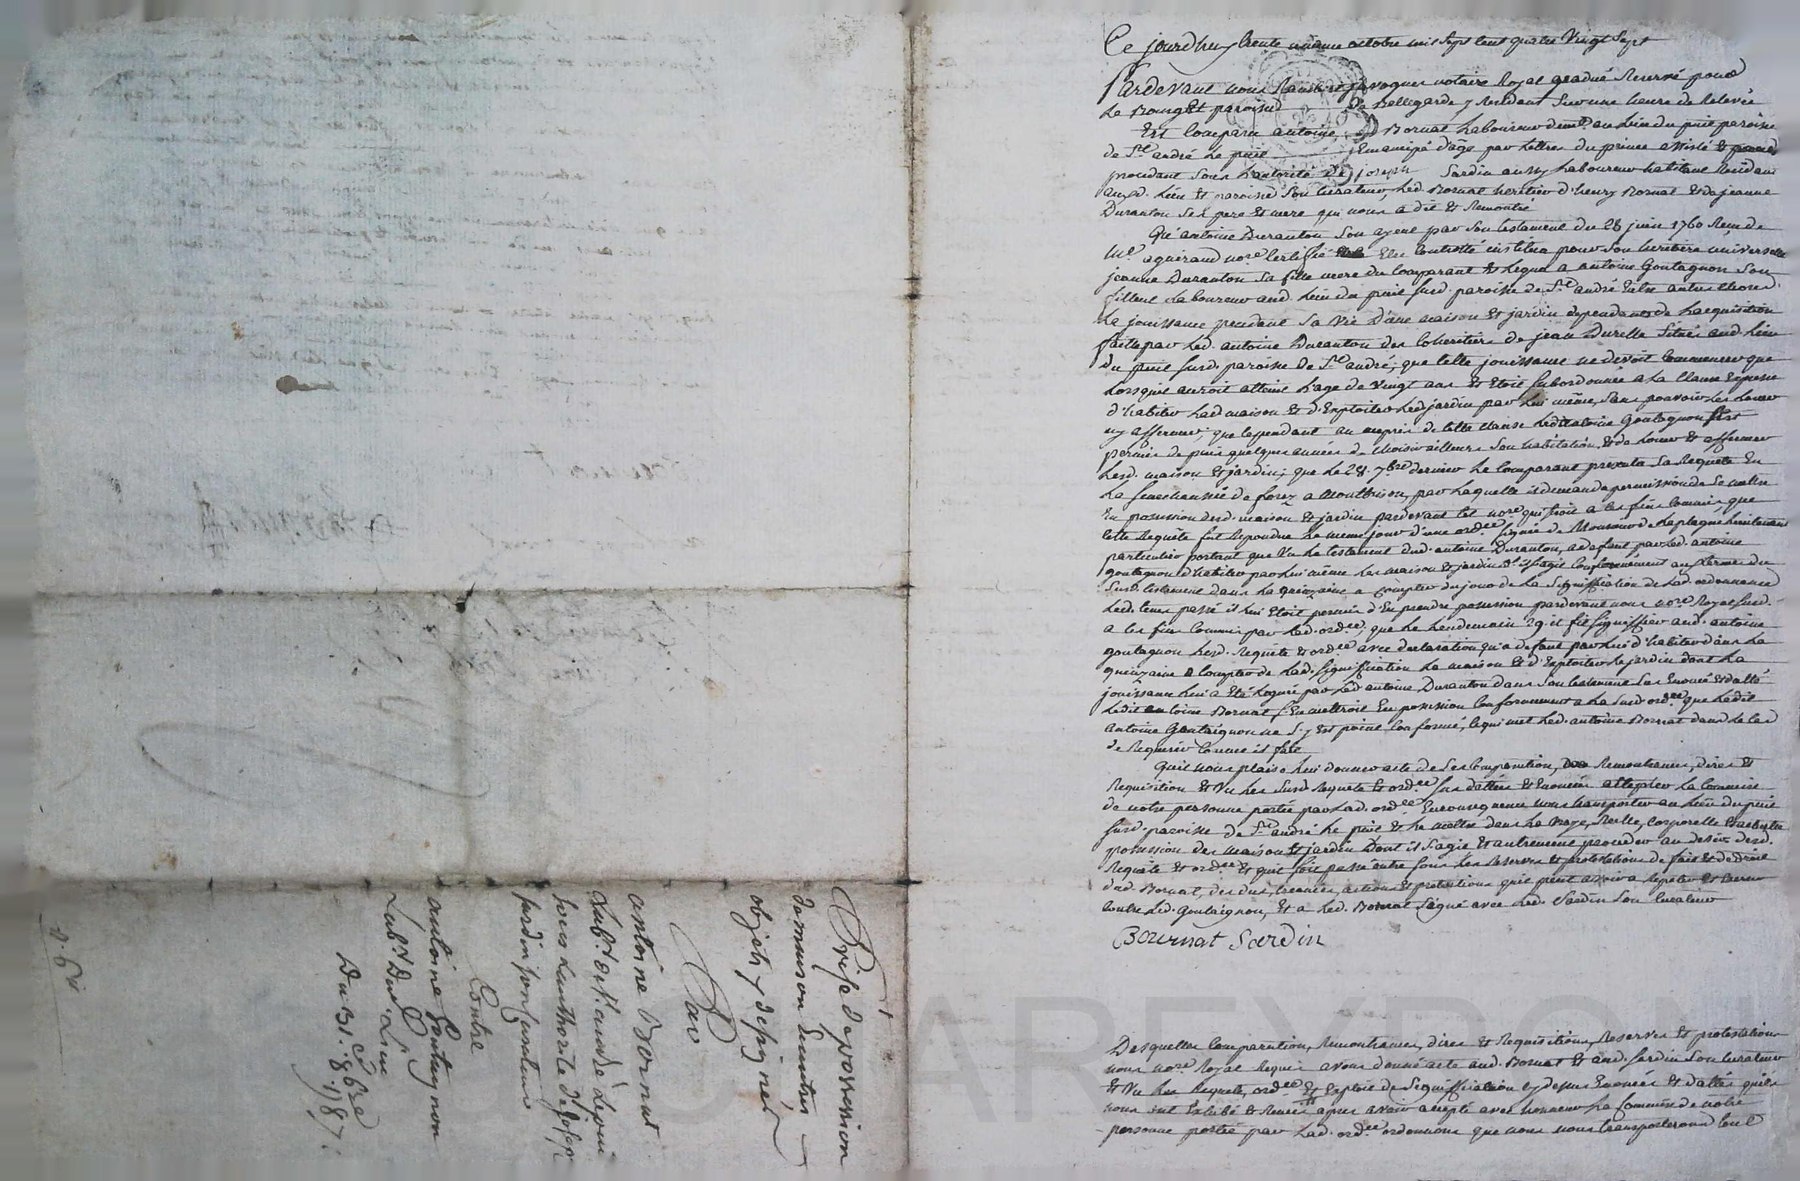 Ce jourdhuy trente unieme octobre mil sept cent quatre vingt sept
Pardevant nous notaire Royal gradué Reservé pour
Le Bourg Et paroisse de Bellegarde y Résidant Sur une heure de Relevée
Est Comparu antoine Bornat Laboureur demt. au Lieu du puit paroisse
de St. andré Le puit Emancipé d'âge par Lettres du prince assisté Et
procédant Sous L'autorité de joseph Sardin aussy Laboureur habitant Residant
aud. Lieu Et paroisse Son Curateur, Led. Bornat heritier d'henry Bornat Et de jeanne
Duranton Ses pere Et mere qui nous a dit Et Remontré
Qu'antoine Duranton Son ayeul par Son testament du 28 juin 1760 Reçu de
Me. agueraud nore. Certifié Et Controllé institua pour Son heritiere universelle
jeanne Duranton Sa fille mere du Comparant Et Legua a antoine Goutagnon Son
filleul Laboureur aud. Lieu du puit Susd. paroisse de St. andré Entre autres choses
La jouissance pendant Sa Vie D'une maison Et jardin dependants de L'acquisition
faite par Led. antoine Duranton des Coheritiers de jean Durelle Situés aud. Lieu
du puit Susd. paroisse de St. andré; que cette jouissance ne devoit Commencer que
Lorsqu'il auroit atteint L'age de Vingt ans Et Etoit Subordonnée a La Clause Expresse
d'habiter Lad. maison Et d'Exploiter Led. jardin par Lui même, Sans pouvoir Les Louer
ny affermer; que Cependant au mepris de cette clause Ledit antoine Goutagnon S'est
permis depuis quelques années de choisir ailleurs Son habitation, Et de Louer Et affermer
Lesd. maison Et jardin; que Le 28. 7bre dernier Le Comparant presenta Sa Requete En
La Senechaussée de forez a Montbrison, par Laquelle il demanda permission de Se mettre
En possession desd. maison Et jardin pardevant tel nore. qui Seroit a Ces fins Commis, que
Cette Requête fut Repondue Le meme jour d'une ordce. Signée de Monsieur de Laplagne Lieutenant
particulier portant que Vu Le testament dud. antoine Duranton, a defaut par Led. antoine
goutagnon d'habiter par Lui même Les maison Et jardin dt. il S'agit Conformement aux termes du
Susd. testament dans La quinzaine a Compter du jour de La Signiffication de Lad. ordonnance
Led. tems passé il Lui Etoit permis d'En prendre possession pardevant nous nore. Royal Susd.
a Ces fins Commis par Lad. ordce., que Le Lendemain 29. il fit Signiffier aud. antoine
goutagnon Lesd. Requête Et ordce. avec declaration qu'a defaut par Lui d'habiter dans La
quinzaine a Compter de Lad. Signiffication La maison Et d'Exploiter Le jardin dont La
jouissance Lui a Eté Leguée par Led. antoine Duranton dans Son testament Sus Enoncé Et datté
Ledit antoine Bornat S'En mettroit En possession Conformement a La Susd. ordce. que Ledit
antoine Goutaignon ne S'y Est point Conformé, Ce qui met Led. antoine Bornat dans Le Cas
de Requerir Comme il fait
Qu'il nous plaise Lui donner acte de Ses Comparution, Remontrances, dires Et
Requisition Et Vu Les Susd. Requete Et ordce. Sus dattées Et Enoncées accepter La Commission
de notre personne portée par Lad. ordce. En Consequence nous transporter au Lieu du puit
Susd. paroisse de St. andré Le puit Et Le mettre dans La Vraye, Réelle, Corporelle
possession des maison Et jardin Dont il S'agit Et autrement proceder au desir desd.
Requête Et ordce. Et quil Soit passé outre Sous Les Reserves Et protestations de fait Et de droit
dud. Bornat, des dus, Creances, actions Et pretentions qu'il peut avoir a Repeter Et Exercer
Contre Led. Goutaignon, Et a Led. Bornat Signé avec Led. Sardin Son Curateur
Bournat Sardin
Desquelles Comparution, Remontrances, dires Et Requisitions, Reserves Et protestations
nous nore. Royal Requis avons donné acte aud. Bornat Et aud. Sardin Son Curateur
Et Vu Les Requête, ordce. Et Exploit de Signiffication Cy dessus Enoncés Et dattés qu'ils
nous ont Exhibé Et Remis apres avoir accepté avec honneur La Commission de notre
personne portée par Lad. ordce. ordonnons que nous nous transporterons tout
Prise de possession
de maison Et autres
objets y designés
Par
antoine Bornat
Lab.r de St. andré Lepuit
sous L'authorité de joseph
sardin son curateur
Contre
antoine Goutagnon
Lab.r Dud. Lieu
Du 31. 8bre
1787.
CAREYRON